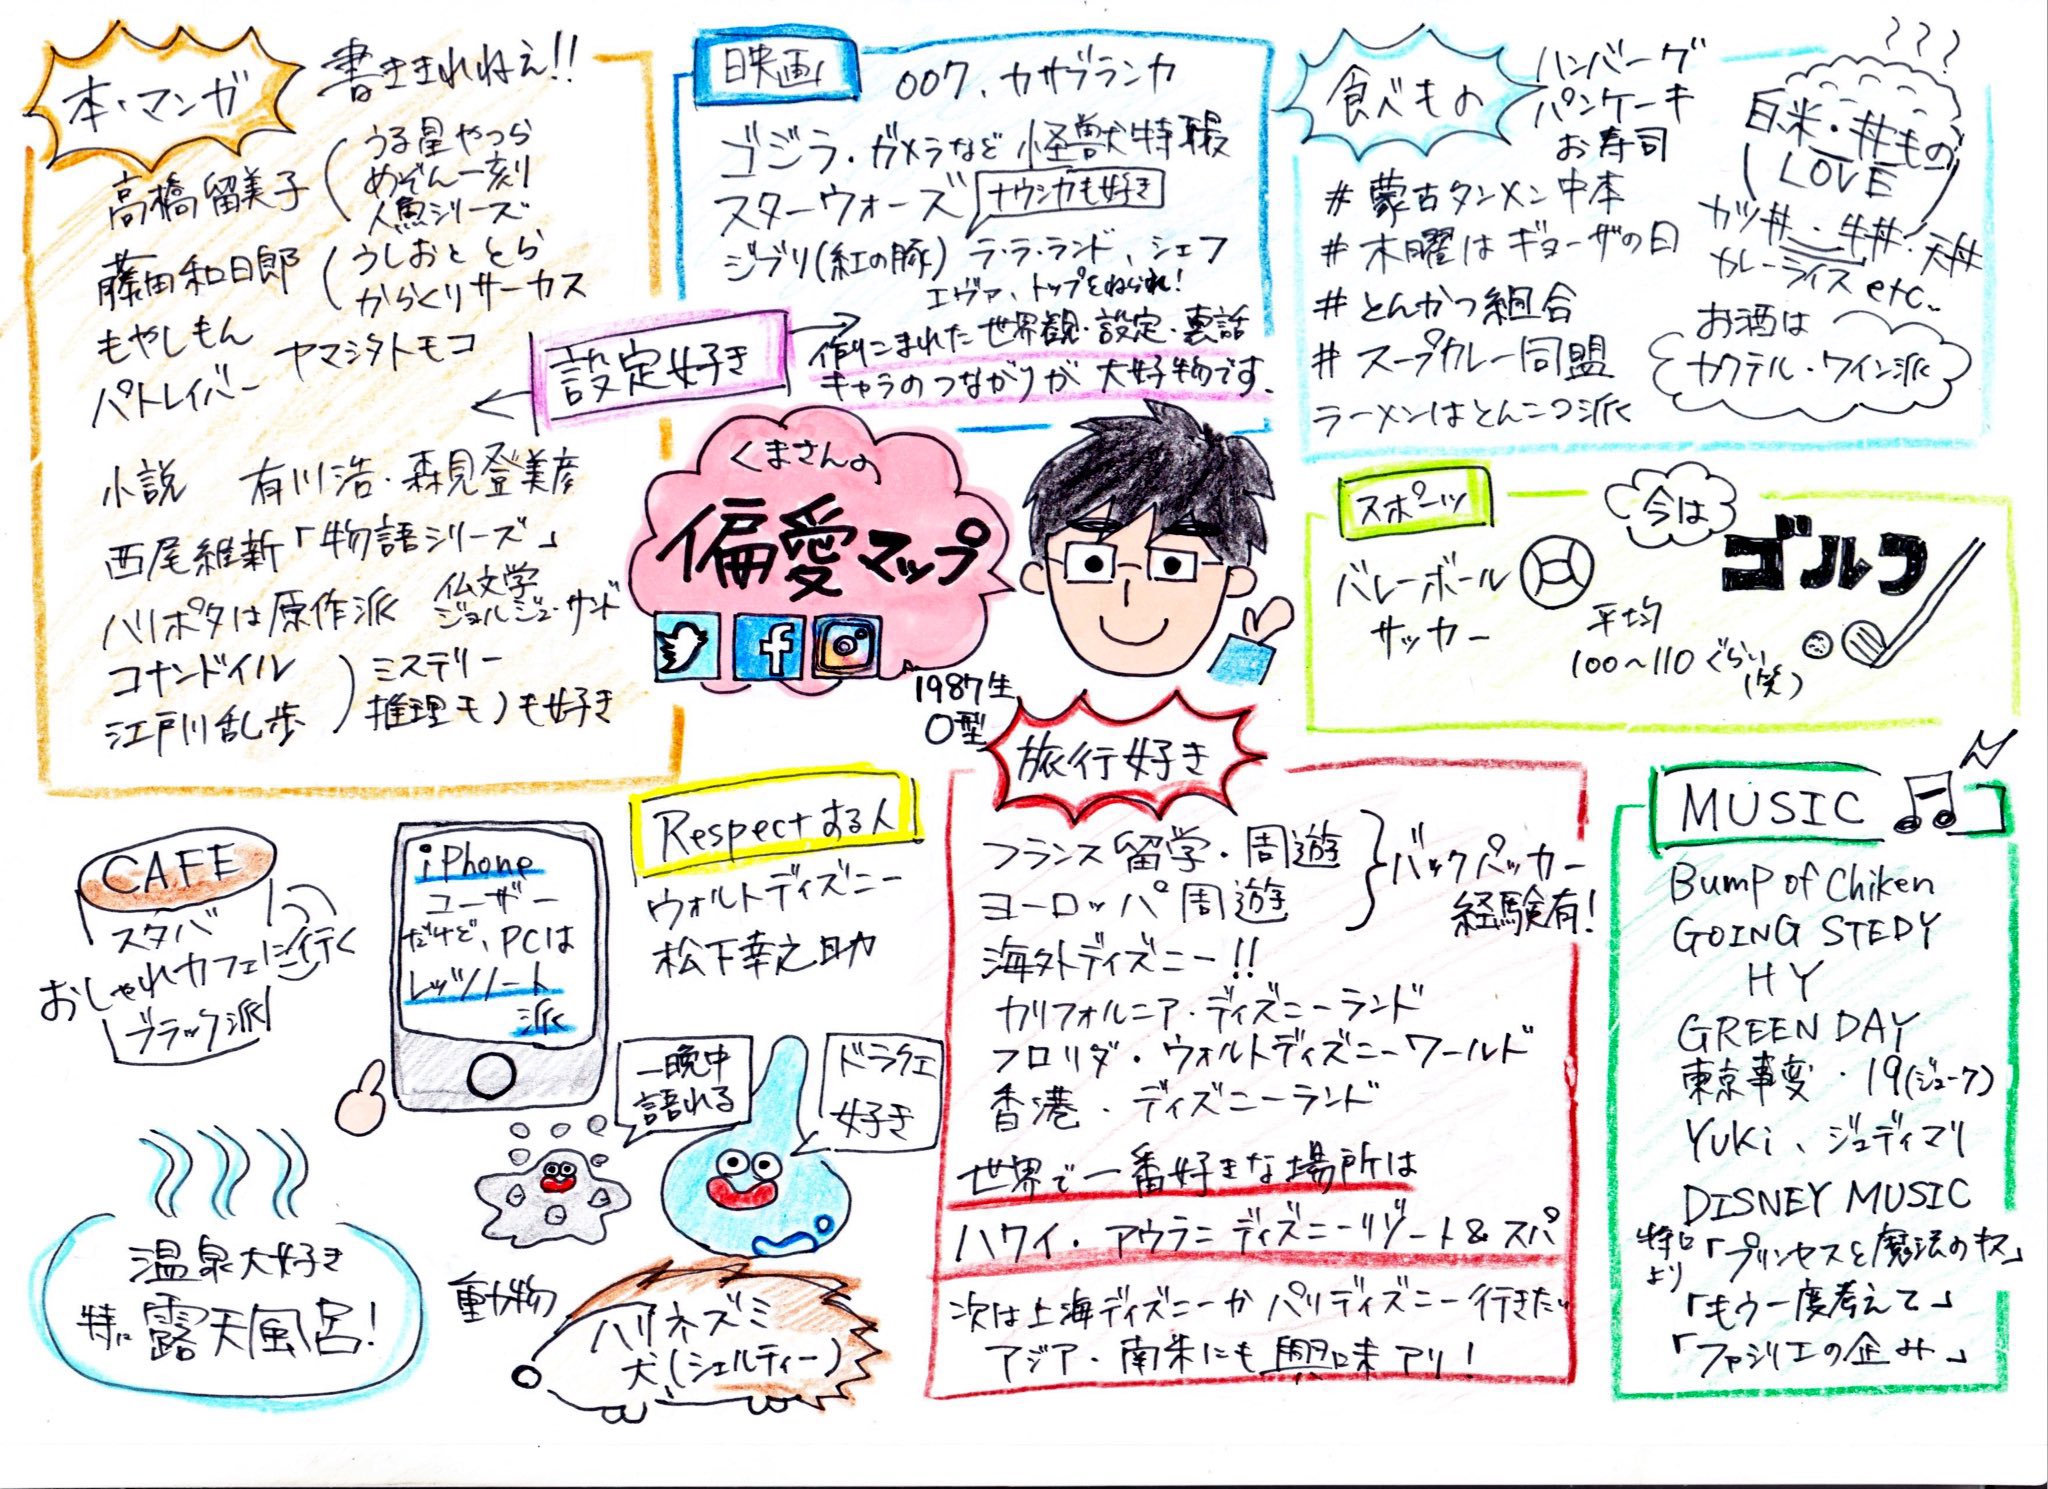 本・マンガ
書ききれねえ!!
高橋留美子
うる星やつら
めぞん一刻
人魚シリーズ
藤田和日郎
うしおととら
からくりサーカス
もやしもん
ヤマシタトモコ
パトレイバー
小説 有川浩・森見登美彦
西尾維新「物語シリーズ」
ハリポタは原作派
仏文学
ジョルジュ・サンド
コナンドイル
江戸川乱歩
ミステリー
推理モノも好き
映画
007、カサブランカ
ゴジラ・ガメラなど怪獣特撮
スターウォーズ
ナウシカも好き
ジブリ(紅の豚) ラ・ラ・ランド、シェフ
エヴァ、トップをねらえ!
設定好き
作りこまれた世界観・設定・裏話
キャラのつながりが大好物です。
食べもの
ハンバーグ
パンケーキ
お寿司
白米・丼もの
LOVE
カツ丼・牛丼・天丼
カレーライス etc..
#蒙古タンメン中本
#木曜はギョーザの日
#とんかつ組合
#スープカレー同盟
ラーメンはとんこつ派
お酒は
カクテル・ワイン派
くまさんの
偏愛マップ
1987生
O型
スポーツ
バレーボール
サッカー
今は
ゴルフ
平均
100〜110ぐらい
(笑)
CAFE
スタバ
おしゃれカフェに行く
ブラック派
iPhone
ユーザー
だけど、PCは
レッツノート
派
Respectする人
ウォルトディズニー
松下幸之助
一晩中
語れる
ドラクエ
好き
温泉大好き
特に露天風呂!
動物
ハリネズミ
犬(シェルティー)
旅行好き
フランス留学・周遊
ヨーロッパ周遊
バックパッカー
経験有!
海外ディズニー!!
カリフォルニア・ディズニーランド
フロリダ・ウォルトディズニーワールド
香港・ディズニーランド
世界で一番好きな場所は
ハワイ・アウラニ ディズニーリゾート&スパ
次は上海ディズニーかパリディズニー行きたい
アジア・南米にも興味アリ!
MUSIC
Bump of Chiken
GOING STEDY
HY
GREEN DAY
東京事変・19(ジューク)
YUKi、ジュディマリ
DISNEY MUSIC
「プリンセスと魔法のキス」
より
「もう一度考えて」
「ファシリエの企み」